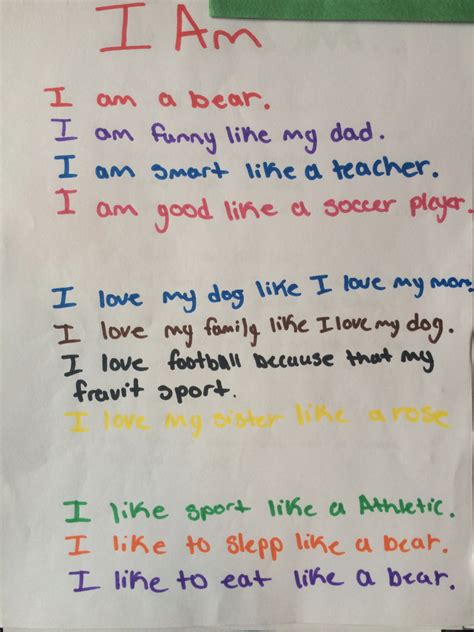 I Am
I am a bear.
I am funny like my dad.
I am smart like a teacher.
I am good like a soccer player.
I love my dog like I love my mom.
I love my family like I love my dog.
I love football because that my
fravit sport.
I love my sister like a rose
I like sport like a Athletic.
I like to slepp like a bear.
I like to eat like a bear.